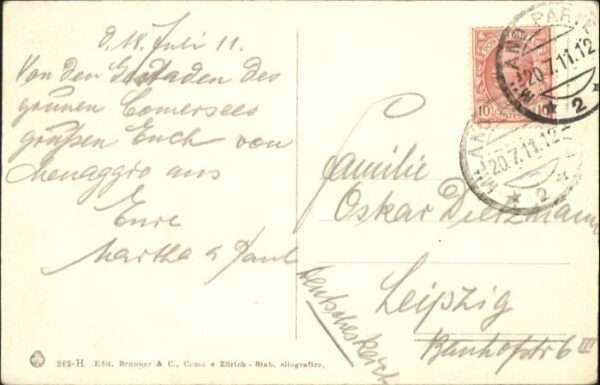 d. 18. Juli 11.
Von den Gestaden des
grünen Comersees
grüßen Euch von
Menaggio aus
Eure
Martha & Paul
Familie
Oskar Dietzmann
Leipzig
Bahnhofstr 6 III
Deutsches Reich
10 10
MILANO PARTENZA
20.7.11.12
* 2 *
MILANO
20.7.11.12
* 2 *
282-H Edit. Brunner & C., Como e Zürich - Stab. eliografico.